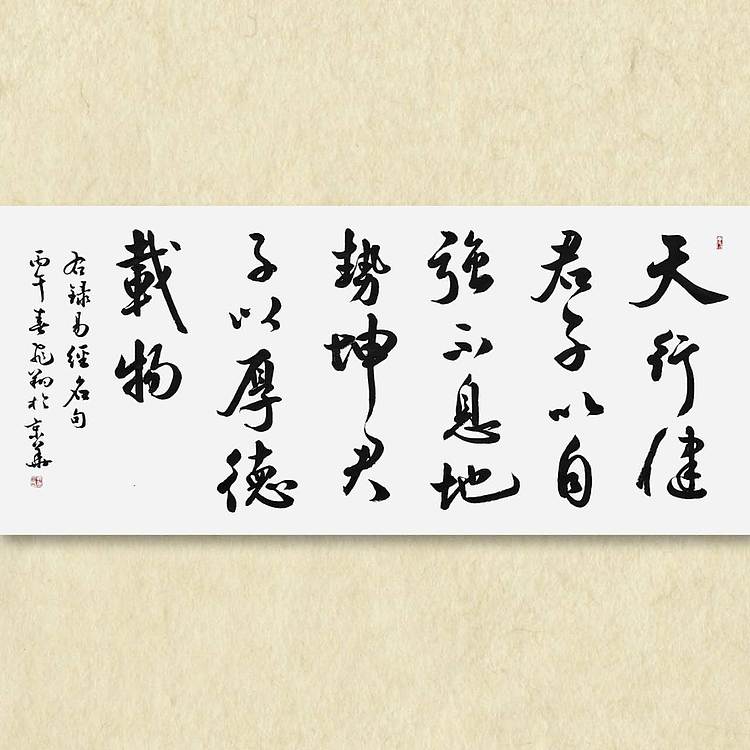 天行健
君子以自
強不息地
勢坤君
子以厚德
載物
右錄易經名句
丙午春飛翔於京華